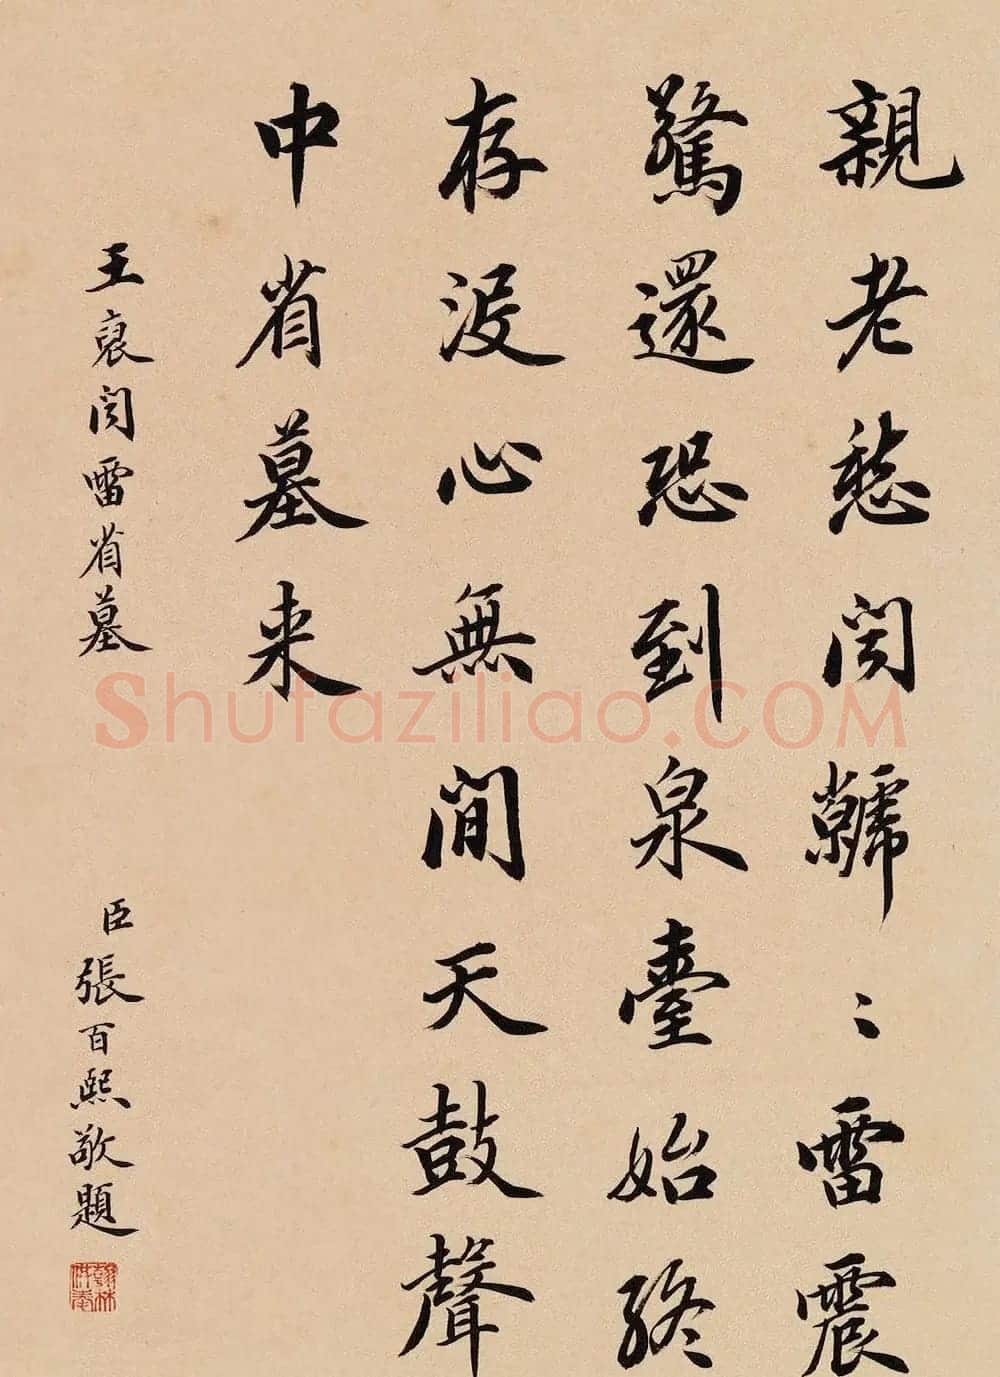 親老愁闻虩〻雷震
驚還恐到泉臺始終
存没心無間天鼓聲
中省墓来
王裒闻雷省墓
臣張百熙敬題
翰林供奉
Shufaziliao.COM